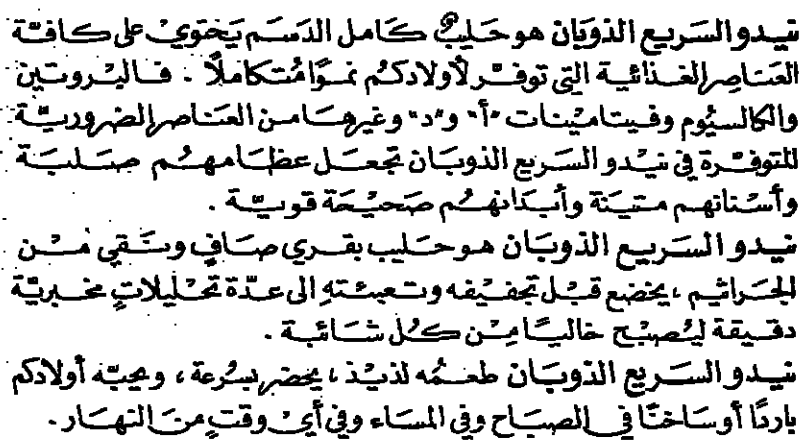 نيدو السَريع الذوبَان هو حَليبٌ كَامل الدَسَم يَحتَوي على كافتة
العنَاصِر الغذائية التي توفّر لأولادكُم نموًا مُتكاملًا . فالبروتين
والكالسيُوم وفيتامينات "أ" و"د" وغيرهَا من العنَاصر الضروريّة
المتوفّرة في نيدو السَريع الذوبَان تجعَل عظامهُم صَلبَة
وأسنانهم متينَة وأبدَانهُم صَحيْحَة قويّة .
نيدو السَريع الذوبَان هو حَليب بقري صَافٍ ونَقي مْن
الجَراثيم ، يخضع قبْل تجفيفه وتعبئتهِ الى عدّة تحْليلاتٍ مخبريّة
دقيقة ليُصبْح خاليًا مِنْ كلُ شائبة .
نيدو السَريع الذوبَان طعمُه لذيذ ، يحضر بسُرعة ، ويحبّه أولادكم
باردًا أو سَاخنًا في الصبَاح وفي المسَاء وفي أيْ وقتٍ منَ النهَار .